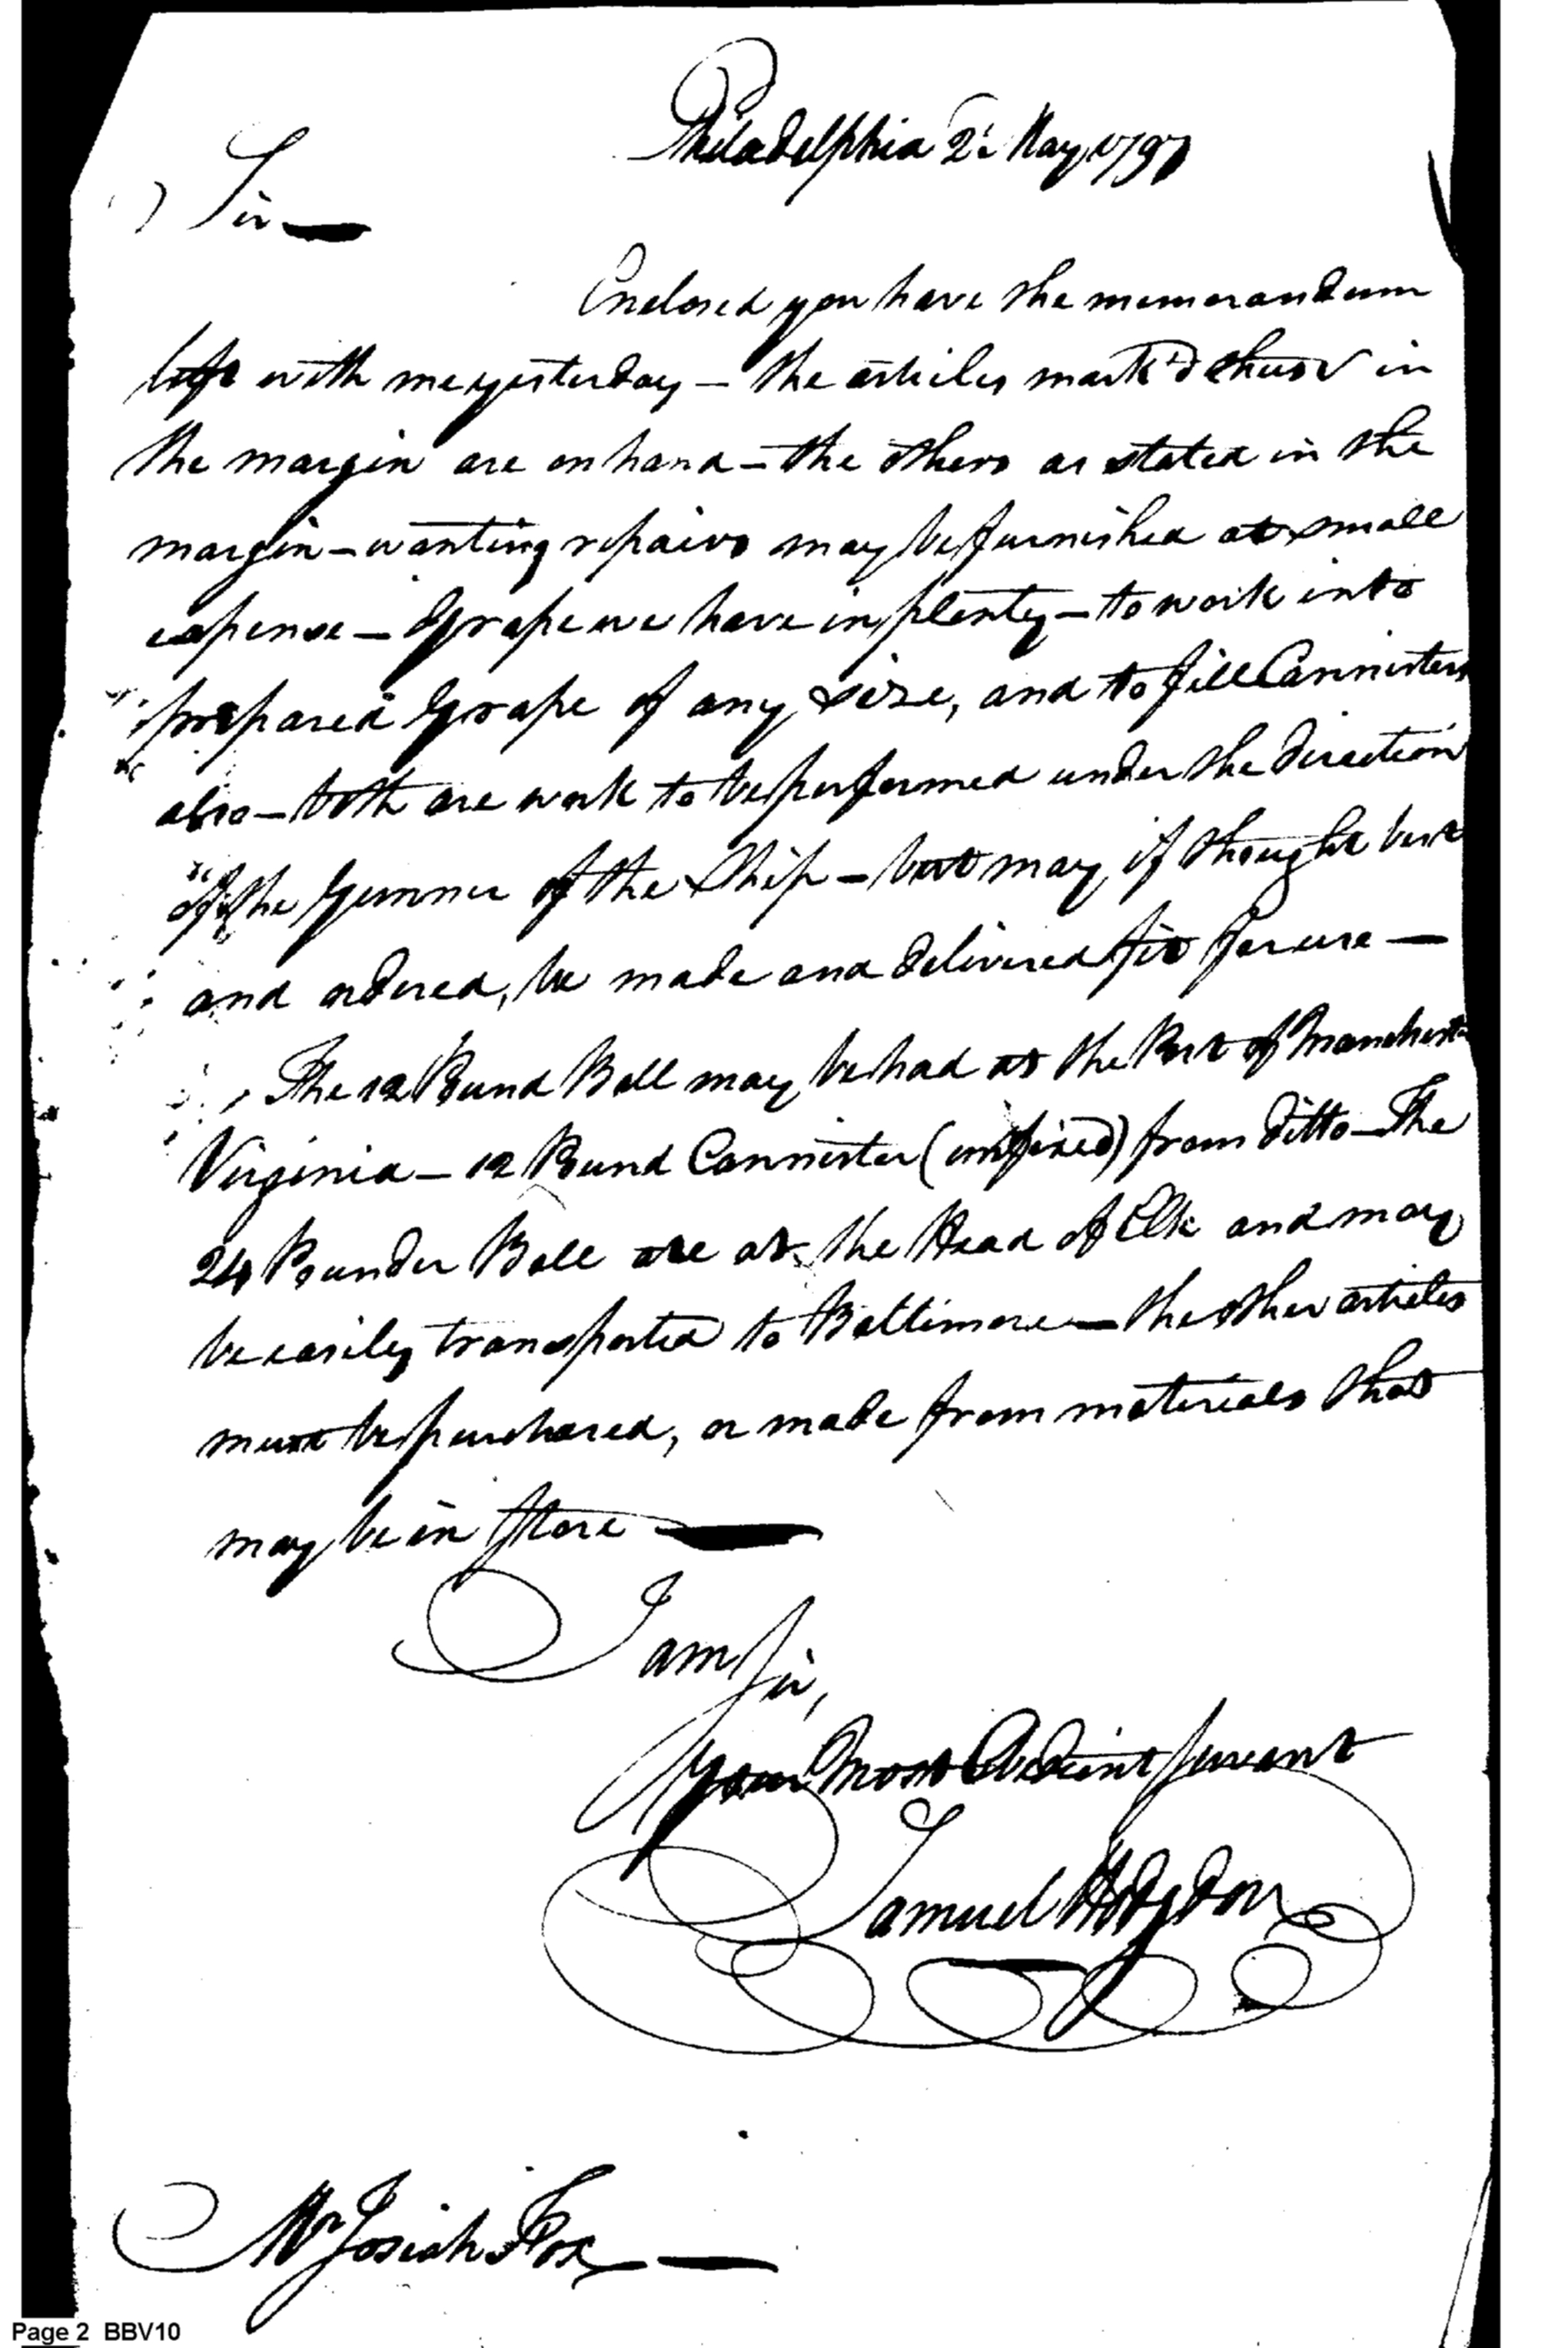 Philadelphia 2d May 1797
Sir—
Enclosed you have the memorandum
left with me yesterday — the articles mark'd thus √ in
the margin are on hand — the others as stated in the
margin — wanting repairs may be furnished at small
expense — Grape we have in plenty — to work into
prepared Grape of any size, and to fill Cannisters
also — both are work to be performed under the direction
of the Gunner of the Ship — but may, if thought best
and ordered, be made and delivered fit for use —
The 12 Pound Ball may be had at the Port of Manchester
Virginia — 12 Pound Cannister (unfixed) from ditto — The
24 Pounder Ball are at the Head of Elk and may
be easily transported to Baltimore — the other articles
must be purchased, or made from materials that
may be in Store —
I am Sir,
Your Most Obedient Servant
Samuel Hodgdon
Mr Josiah Fox —
Page 2 BBV10